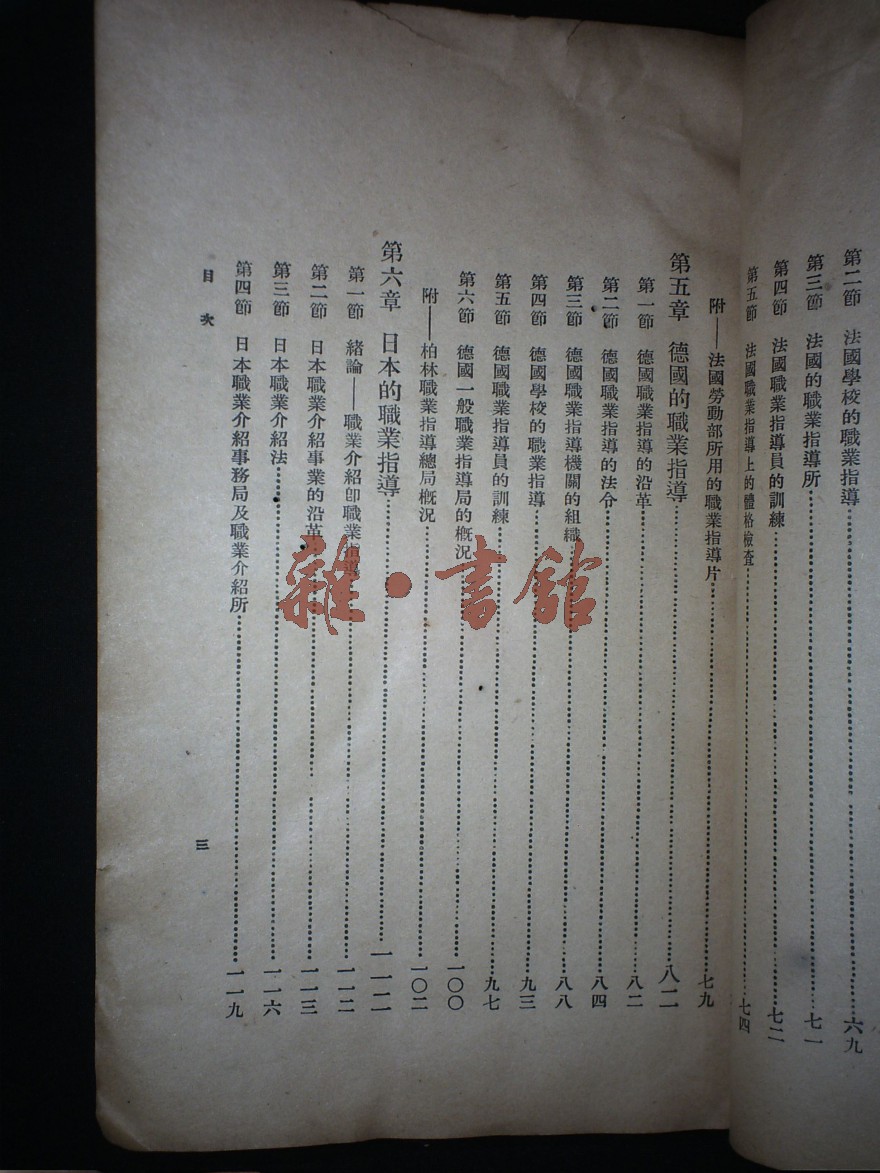 第二節 法國學校的職業指導……六九
第三節 法國的職業指導所……七一
第四節 法國職業指導員的訓練……七二
第五節 法國職業指導上的體格檢查……七四
附——法國勞動部所用的職業指導片……七九
第五章 德國的職業指導……八二
第一節 德國職業指導的沿革……八二
第二節 德國職業指導的法令……八四
第三節 德國職業指導機關的組織……八八
第四節 德國學校的職業指導……九三
第五節 德國職業指導員的訓練……九七
第六節 德國一般職業指導局的概況……一〇〇
附——柏林職業指導總局概況……一〇二
第六章 日本的職業指導……一一二
第一節 緒論——職業介紹卽職業指導……一一二
第二節 日本職業介紹事業的沿革……一一三
第三節 日本職業介紹法……一一六
第四節 日本職業介紹事務局及職業介紹所……一一九
目次
三
雜·書館